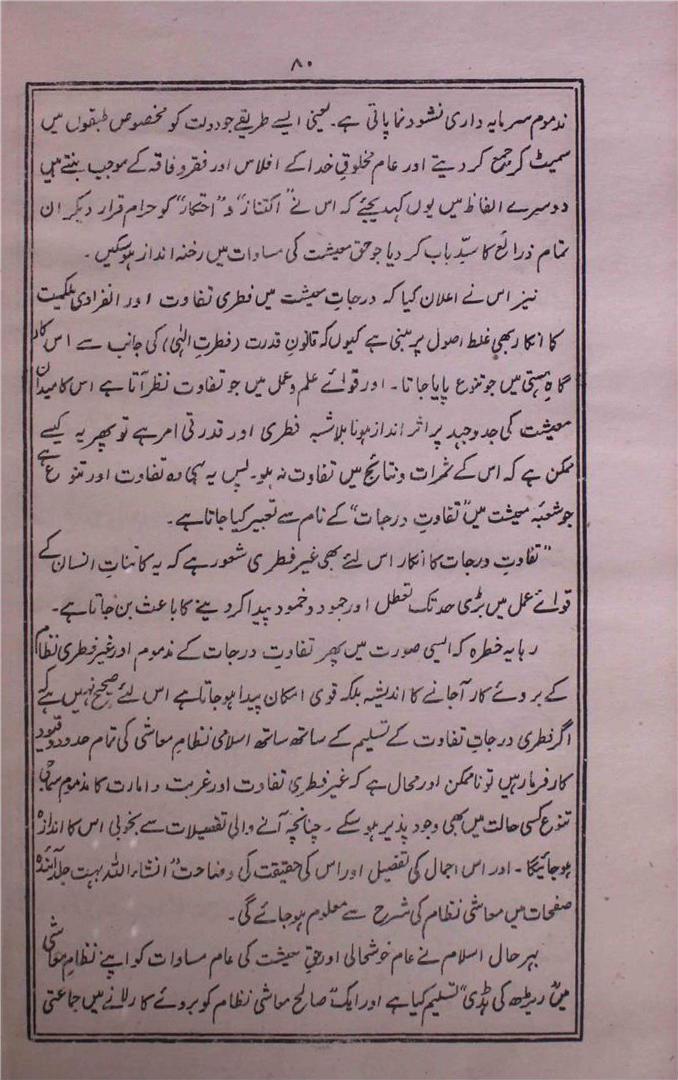 ۸۰
مذموم سرمایہ داری نشوونما پاتی ہے۔ یعنی ایسے طریقے جو دولت کو مخصوص طبقوں میں
سمیٹ کر جمع کر دیتے اور عام مخلوقِ خدا کے افلاس اور فقر و فاقہ کے موجب بنتے ہیں
دوسرے الفاظ میں یوں کہدیجئے کہ اس نے "اکتناز" و "احتکار" کو حرام قرار دیکر ان
تمام ذرائع کا سدِّ باب کر دیا جو حق معیشت کی مساوات میں رخنہ انداز ہو سکیں۔
نیز اس نے اعلان کیا کہ درجاتِ معیشت میں فطری تفاوت اور انفرادی ملکیت
کا انکار بھی غلط اصول پر مبنی ہے کیوں کہ قانونِ قدرت (فطرتِ الٰہی) کی جانب سے اس کار
گاہِ ہستی میں جو تنوع پایا جاتا۔ اور قوائے علم و عمل میں جو تفاوت نظر آتا ہے اس کا میدان
معیشت کی جد و جہد پر اثر انداز ہونا بلاشبہ فطری اور قدرتی امر ہے تو پھر یہ کیسے
ممکن ہے کہ اس کے ثمرات و نتائج میں تفاوت نہ ہو۔ پس یہ ہی وہ تفاوت اور تنوع ہے
جو شعبۂ معیشت میں "تفاوتِ درجات" کے نام سے تعبیر کیا جاتا ہے۔
"تفاوتِ درجات کا انکار اس لئے بھی غیر فطری شعور ہے کہ یہ کائناتِ انسان کے
قوائے عمل میں بڑی حد تک تعطل اور جمود و خمود پیدا کر دینے کا باعث بن جاتا ہے۔
رہا یہ خطرہ کہ ایسی صورت میں پھر تفاوتِ درجات کے مذموم اور غیر فطری نظام
کے بروئے کار آجانے کا اندیشہ بلکہ قوی امکان پیدا ہو جاتا ہے اس لئے صحیح نہیں ہے کہ
اگر فطری درجاتِ تفاوت کے تسلیم کے ساتھ ساتھ اسلامی نظامِ معاشی کی تمام حدود و قیود
کار فرما رہیں تو ناممکن اور محال ہے کہ غیر فطری تفاوت اور غربت و امارت کا مذموم سماجی
تنوع کسی حالت میں بھی وجود پذیر ہو سکے۔ چنانچہ آنے والی تفصیلات سے بخوبی اس کا اندازہ
ہو جائیگا۔ اور اس اجمال کی تفصیل اور اس کی حقیقت کی وضاحت" انشاء اللہ بہت جلد آئندہ
صفحات میں معاشی نظام کی شرح سے معلوم ہو جائے گی۔
بہر حال اسلام نے عام خوشحالی اور حقِ معیشت کی عام مساوات کو اپنے نظامِ معاشی
میں "ریڑھ کی ہڈی" تسلیم کیا ہے اور ایک صالح معاشی نظام کو بروئے کار لانے میں جماعتی